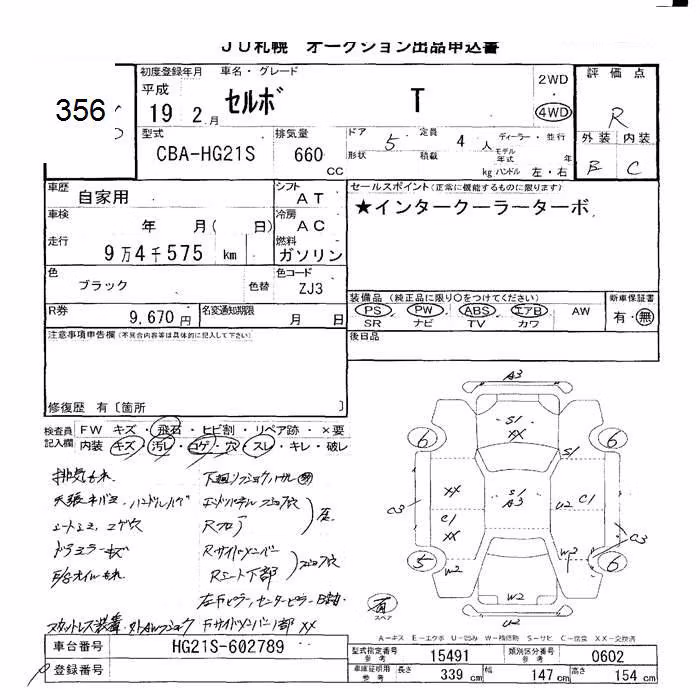 JU札幌 オークション出品申込書
356
初度登録年月 車名・グレード
平成 19 2 月 セルボ T
2WD
4WD
評価点
R
型式 排気量 ドア 定員 ディーラー・並行
CBA-HG21S 660 CC 5 4 人
形状 積載 kg モデル年式 年 ハンドル 左・右
外装 内装
B C
車歴 自家用 シフト AT
車検 年 月( 日) 冷房 AC
走行 9万4千575 km 燃料 ガソリン
色 ブラック 色替 色コード ZJ3
R券 9,670 円 名変通知期限 月 日
セールスポイント(正常に機能するものに限ります)
★インタークーラーターボ
装備品 (純正品に限り〇をつけてください) 新車保証書
PS PW ABS エアB AW 有・無
SR ナビ TV カワ
後日品
注意事項申告欄(不具合内容等は具体的に記入して下さい)
修復歴 有〔箇所 〕
検査員記入欄 FW キズ・飛石・ヒビ割・リペア跡・×要
内装 キズ・汚し・コゲ・穴・スレ・キレ・破レ
排気もれ
天張ネバミ
シートシミ コゲ穴
ドアミラーキズ
E/Gオイルもれ
Rフロア
Rサイドメンバー
Rシート下部
左Fピラー,センターピラー
Fサイドメンバー1部 XX
A3
S1
XX
6 6
S1
XX
S1
A3
U2 C1
C3
C1
XX
C3
5 6
W2
W3
W2
U2
スペア
A-キズ E-エクボ U-凹み W-補修跡 S-サビ C-腐食 XX-交換済
車台番号 HG21S-602789
登録番号
型式指定番号 参考 15491 類別区分番号 参考 0602
車庫証明用 参考 長さ 339 cm 幅 147 cm 高さ 154 cm